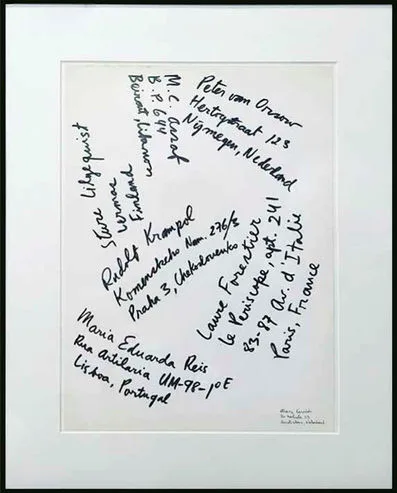 Peter van Orsouw
Hertogstraat 123
Nijmegen, Nederland
M. C. Assaf
B.P. 644
Beirut, Liban
Sture Liljequist
Vermas
Finland
Rudolf Krampol
Nam. 276/3
Praha 3,
Laure Forestier
Le Periscope, apt. 241
83-87 Av. d'Italie
Paris, France
Maria Eduarda Reis
Rua Artilaria UM-98-1º E
Lisboa, Portugal